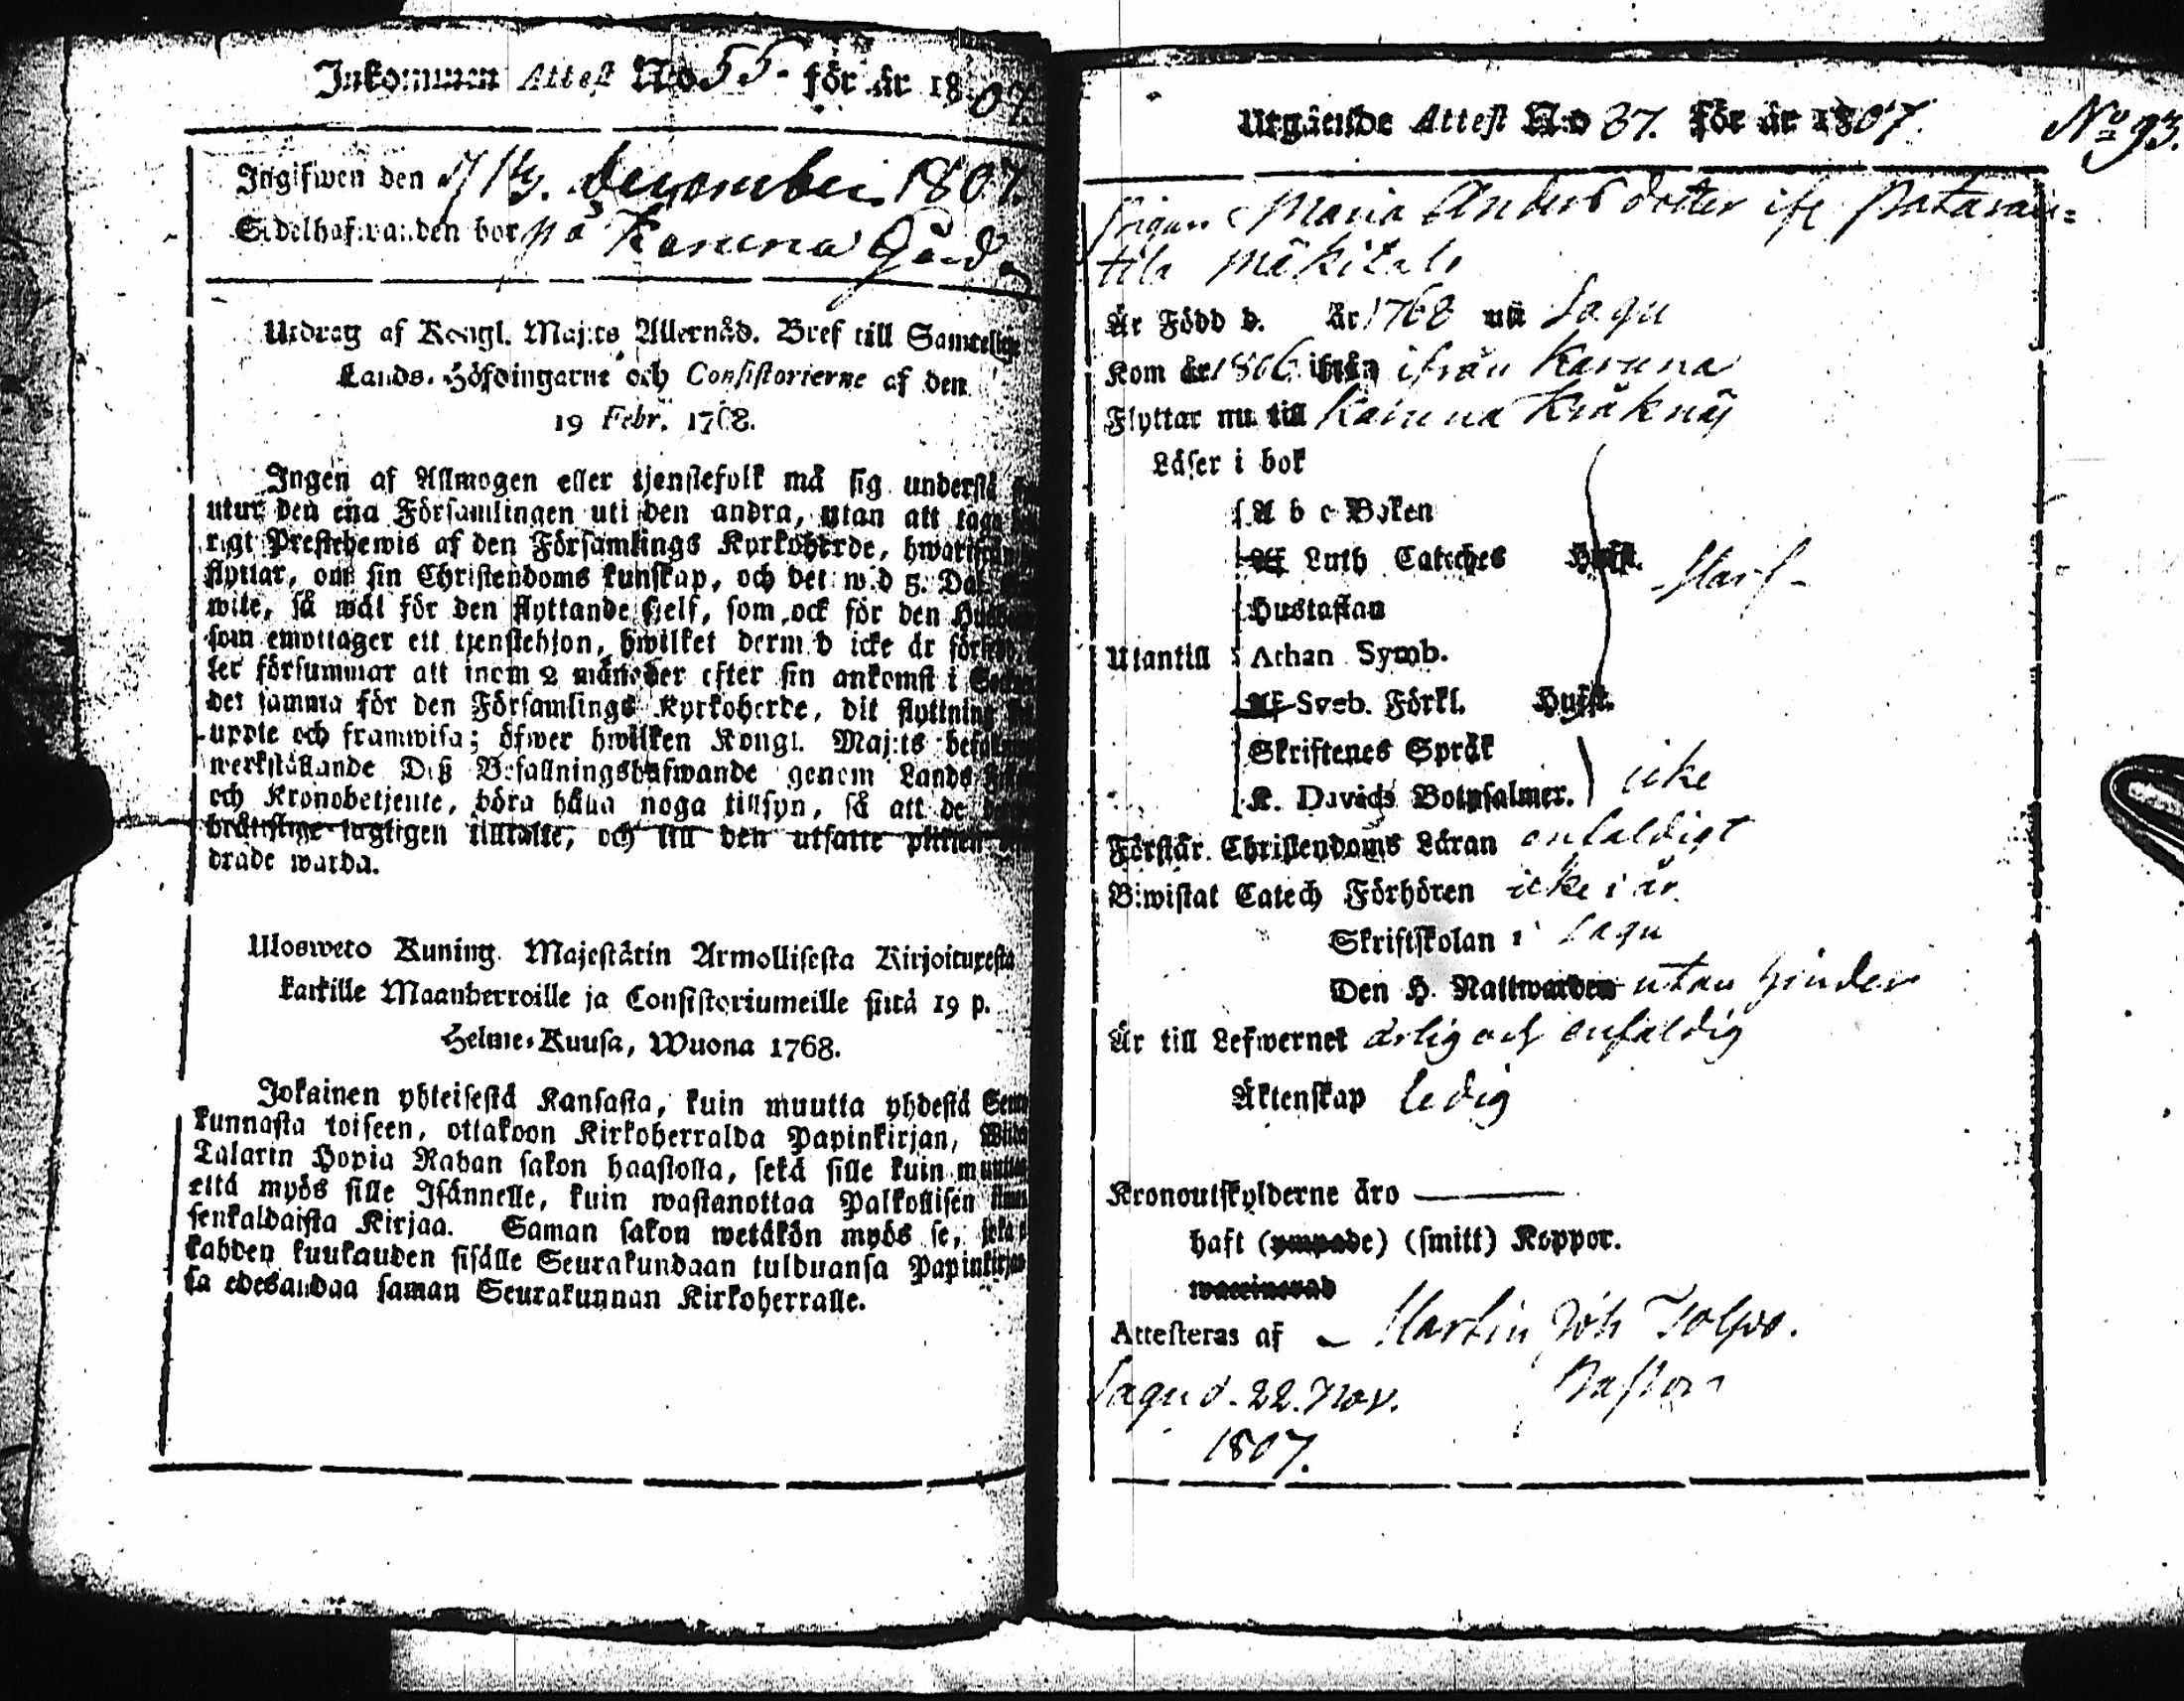 Inkommen Attest N:o 55. för år 1807.
Ingifwen den 13. december 1807.
Sedelhafwanden bor på Karuna Gård
Utdrag af Kongl. Maj:ts Allernåd. Bref till Samtelige
Lands-Höfdingarne och Consistorierne af den
19 Febr. 1768.
Ingen af Allmogen eller tjenstefolk må sig understå
utur den ena Församlingen uti den andra, utan att taga
rigt Prestebewis af den Församlings Kyrkoherde,
flyttar, om sin Christendoms kunskap, och det wid 5. Dal.
wite, så wäl för den flyttande sjelf, som ock för den
som emottager ett tjenstehjon, hwilket dermed icke är
ler försummar att inom 2 månader efter sin ankomst i
det samma för den Församlings Kyrkoherde, dit flyttning
uppte och framwisa; öfwer hwilken Kongl. Maj:ts
werkställande Deß Befallningshafwande genom Lands
och Kronobetjente, böra hålla noga tillsyn, så att de
brättslige lagligen tilltalte, och till den utsatte plikten
dräde warda.
Uloswето Kuning. Majestätin Armollisesta Kirjoituxesta
kaikille Maanherroille ja Consistoriumeille siitä 19 p.
Helme-Kuusa, Wuona 1768.
Jokainen yhteisestä Kansasta, kuin muutta yhdestä Seura
kunnasta toiseen, ottakoon Kirkoherralda Papinkirjan,
Talarin Hopia Rahan sakon haastolla, sekä sille kuin muutta
että myös sille Isännelle, kuin wastanottaa Palkollisen
senkaldaista Kirjaa. Saman sakon wetäkön myös se,
kahden kuukauden sisälle Seurakundaan tulduansa Papinkirjan
sa edesandaa saman Seurakunnan Kirkoherralle.
Utgående Attest N:o 37. för år 1807. No 93.
Pigan Maria Anders dotter ifr
tila Mäkitalo
Är Född d. År 1768 uti Sagu
Kom år 1806 ifrån ifrån Karuna
Flyttar nu till Karuna Kråknäs
Läser i bok
A b c Boken
Luth Cateches
Hustaflan
Utantill Athan Symb.
Sveb. Förkl.
Skriftenes Språk
K. Davids Botpsalmer. icke
Förstår Christendoms Läran enfaldigt
Biwistat Catech Förhören icke i år
Skriftskolan i Sagu
Den H. Nattwarden utan hinder
Är till Lefwernet ärlig och enfaldig
Äktenskap ledig
Kronoutskylderne äro
haft (ympade) (smitt) Koppor.
waccinerad
Attesteras af Martin Joh Tolpo.
Sagu d. 22. Nov. Pastor
1807.